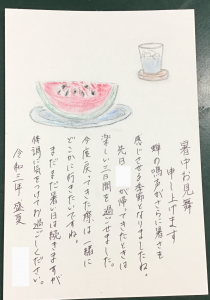 暑中お見舞
申し上げます
蝉の鳴声がさらに暑さを
感じさせる季節となりましたね。
先日 が帰ってきたときは
楽しい三日間を過ごせました。
今度戻ってきた際は一緒に
どこかに行きたいですね。
まだまだ暑い日は続きますが
体調に気をつけてお過ごしください。
令和二年 盛夏